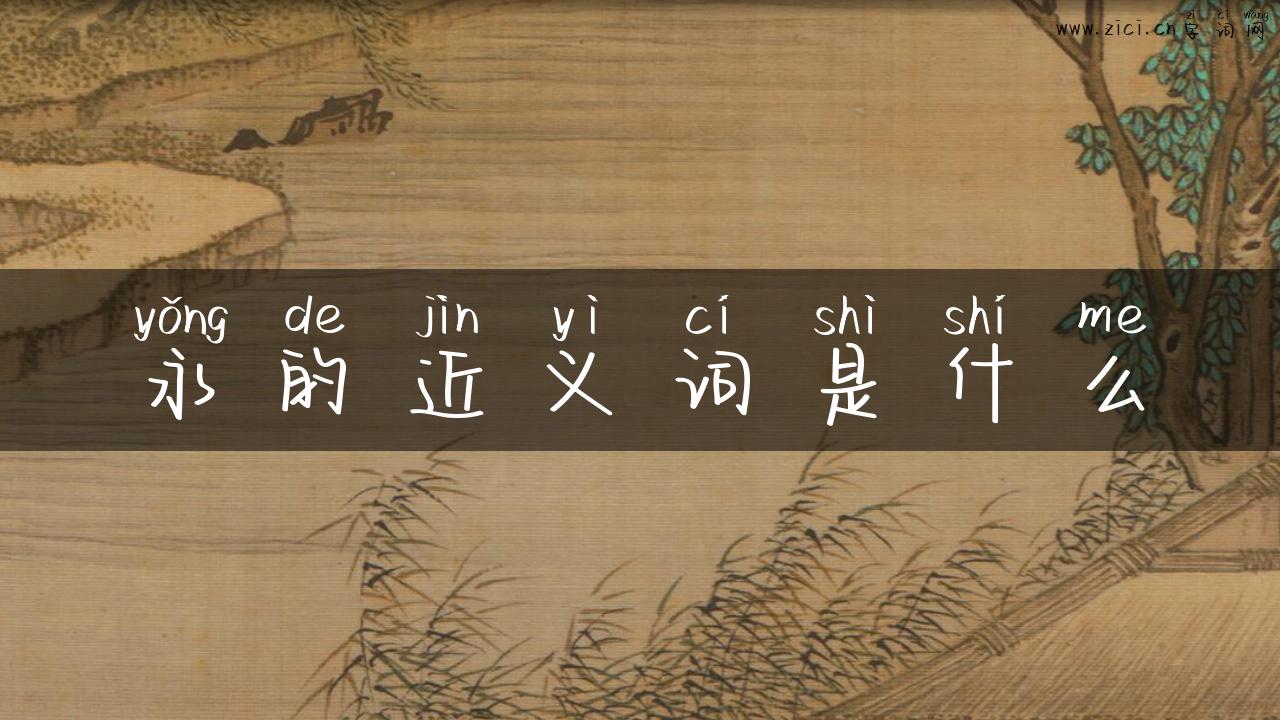 zì cí wǎng
www.zici.cn 字词网
yǒng de jìn yì cí shì shí me
永的近义词是什么